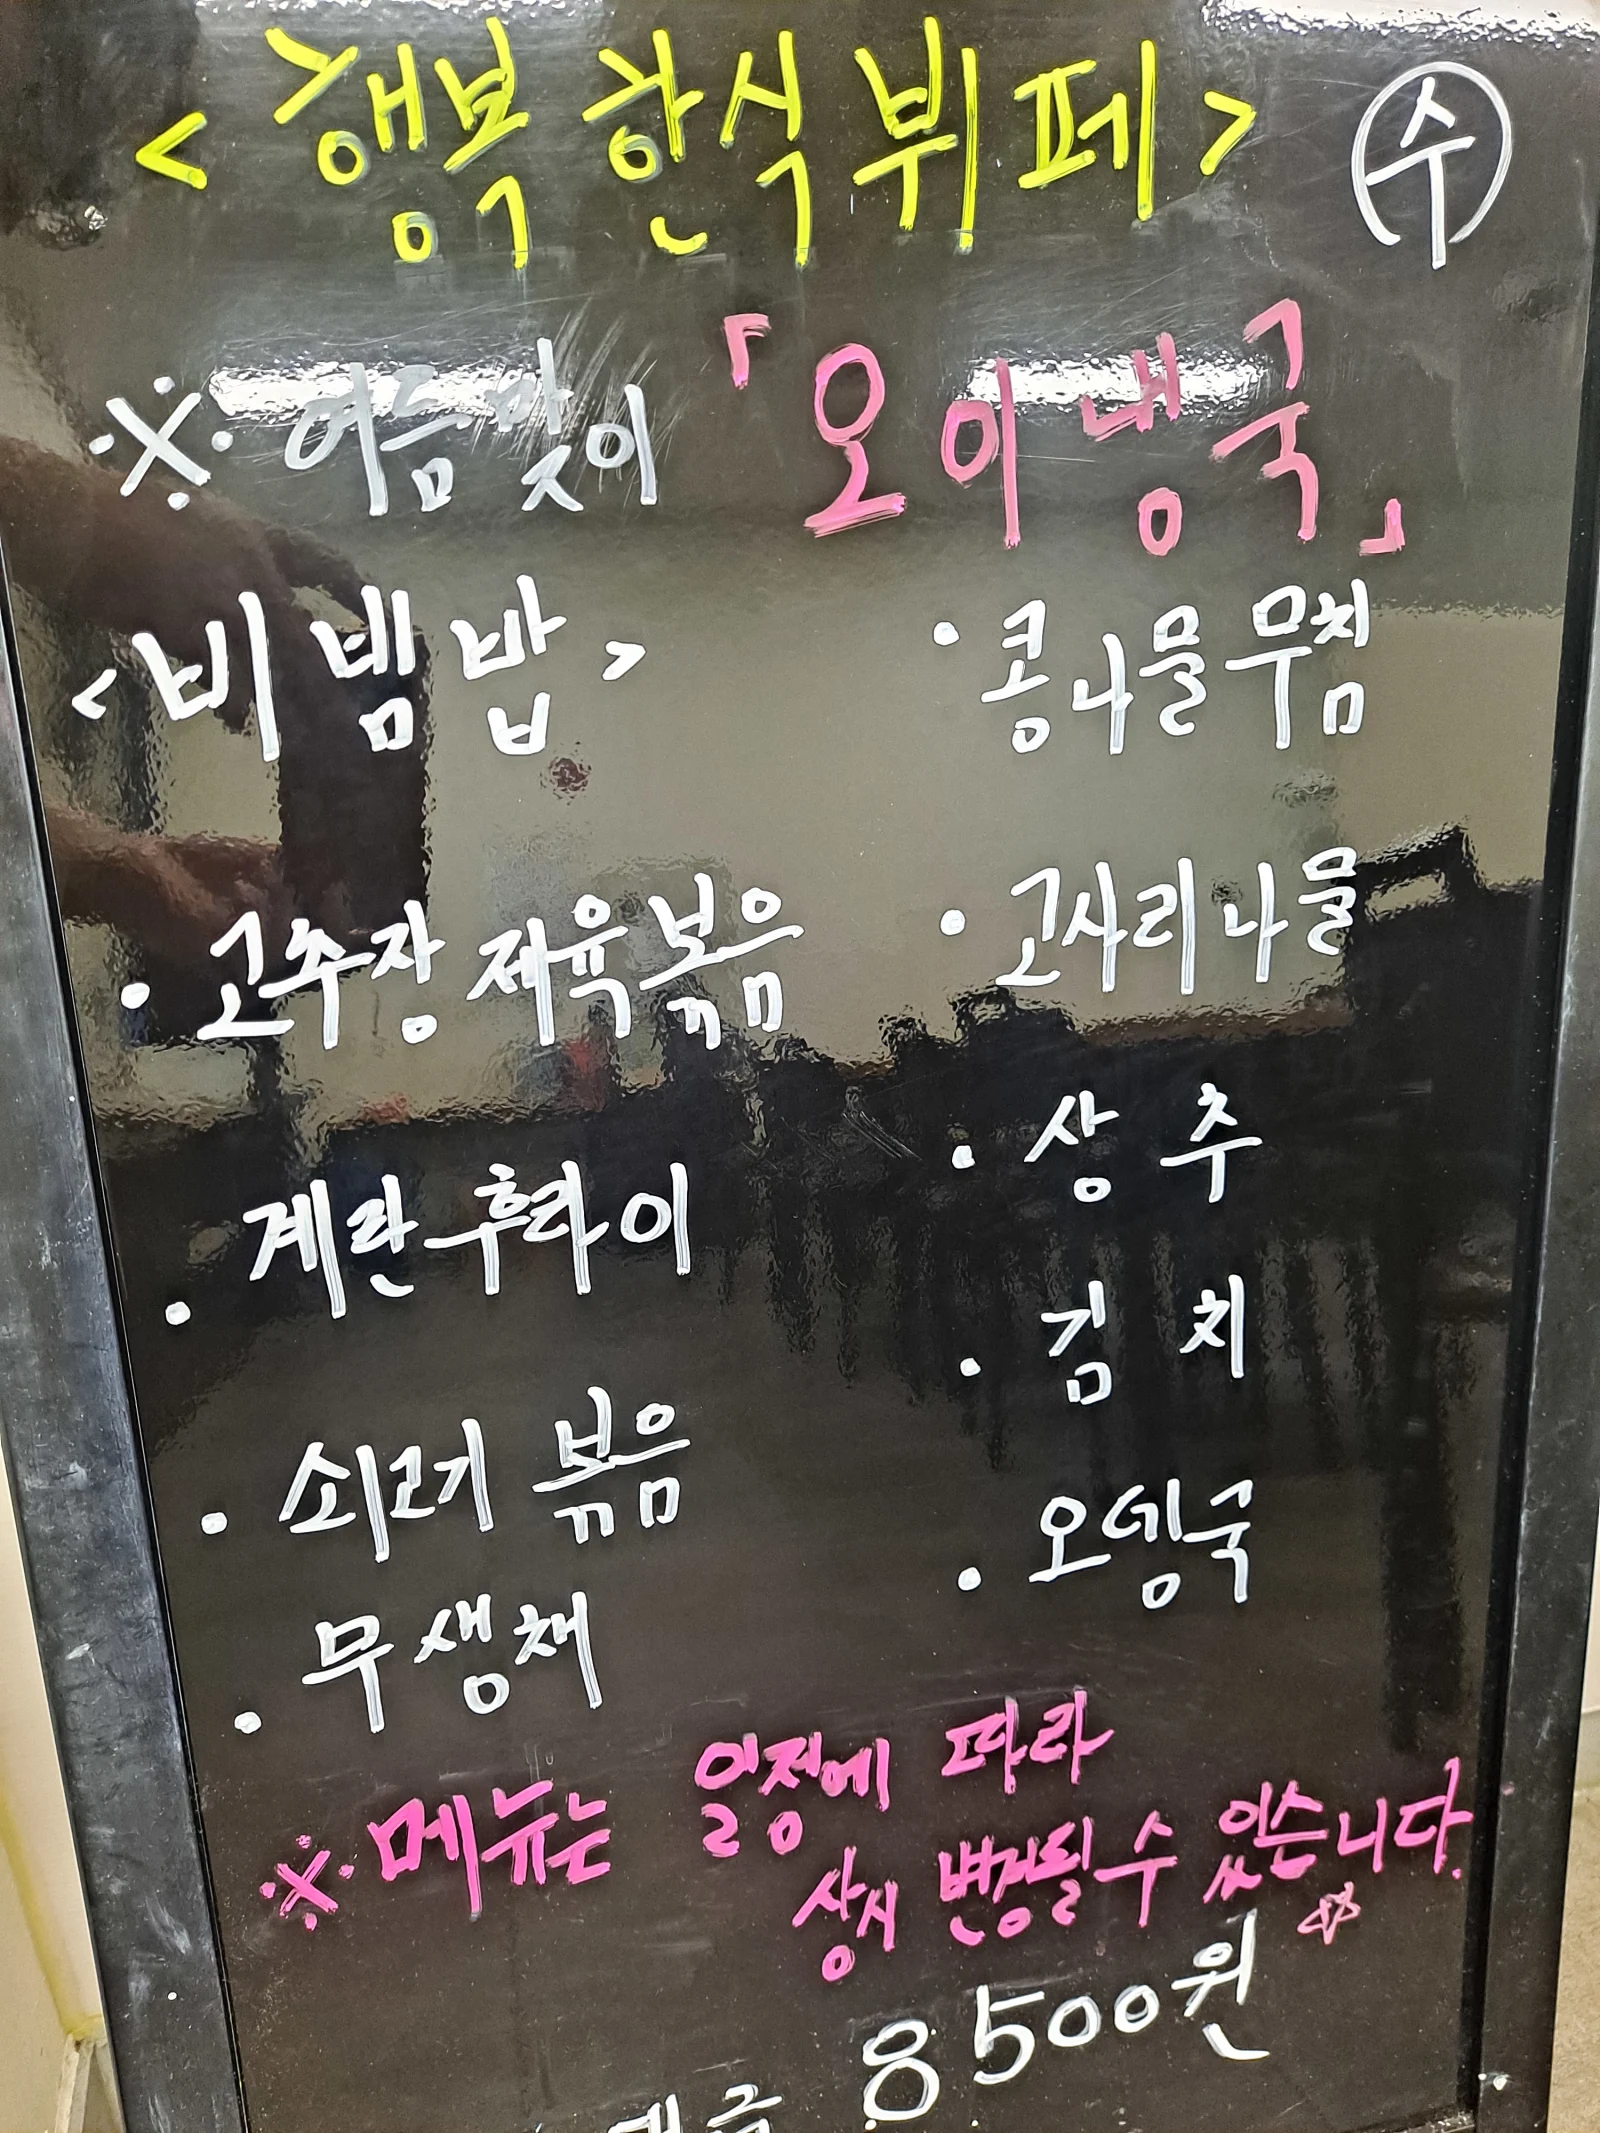 <행복 한식뷔페> 수
※ 여름맞이 「오이냉국」
<비빔밥>
· 고추장 제육볶음
· 계란후라이
· 쇠고기 볶음
· 무생채
· 콩나물무침
· 고사리나물
· 상추
· 김치
· 오뎅국
※ 메뉴는 일정에 따라
상시 변경될 수 있습니다.
8500원